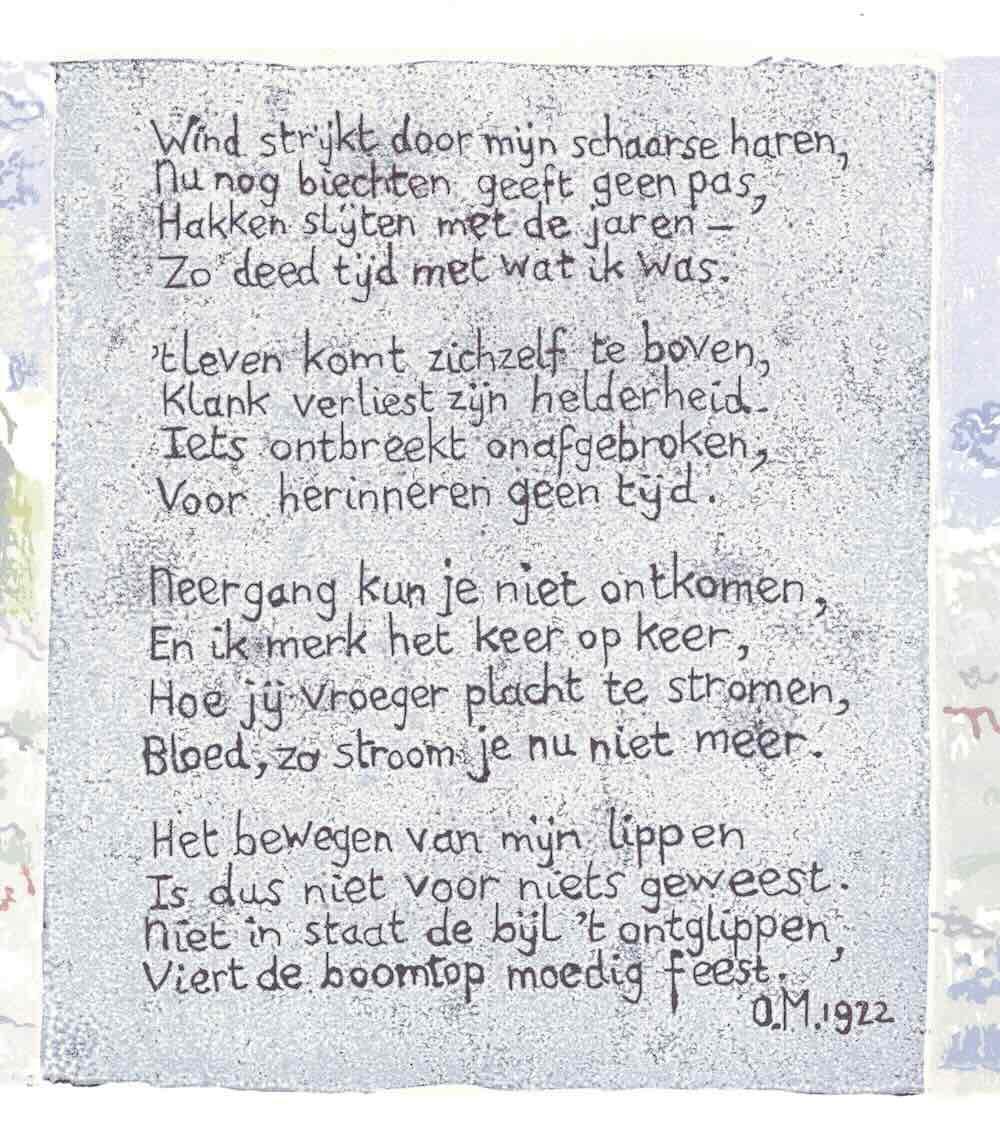 Wind strijkt door mijn schaarse haren,
Nu nog biechten geeft geen pas,
Hakken slijten met de jaren –
Zo deed tijd met wat ik was.
't leven komt zichzelf te boven,
Klank verliest zijn helderheid.
Iets ontbreekt onafgebroken,
Voor herinneren geen tijd.
Neergang kun je niet ontkomen,
En ik merk het keer op keer,
Hoe jij vroeger placht te stromen,
Bloed, zo stroom je nu niet meer.
Het bewegen van mijn lippen
Is dus niet voor niets geweest.
Niet in staat de bijl 't ontglippen,
Viert de boomtop moedig feest.
O.M. 1922